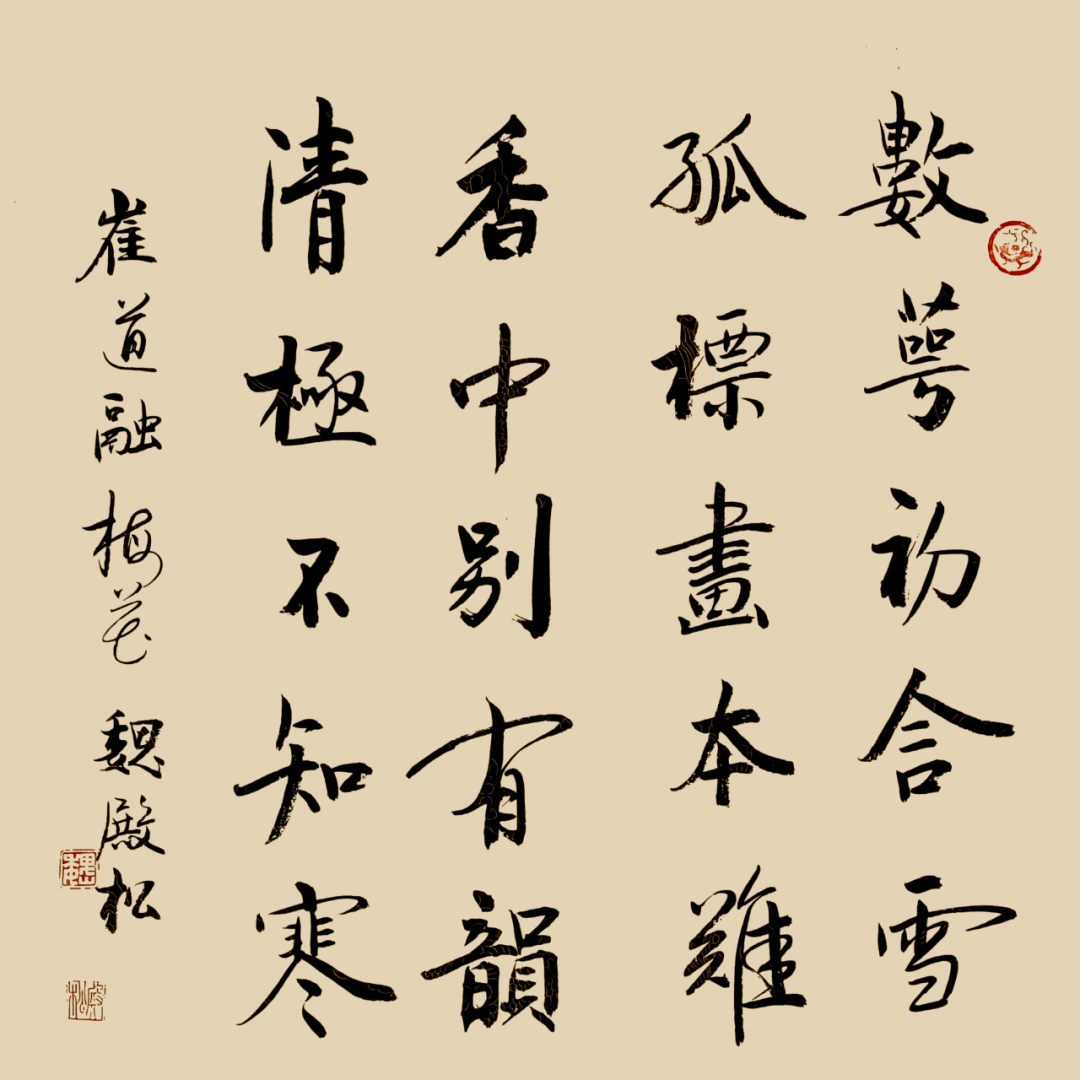 數萼初含雪
孤標畫本難
香中别有韻
清極不知寒
崔道融梅花 魏殿松
魏